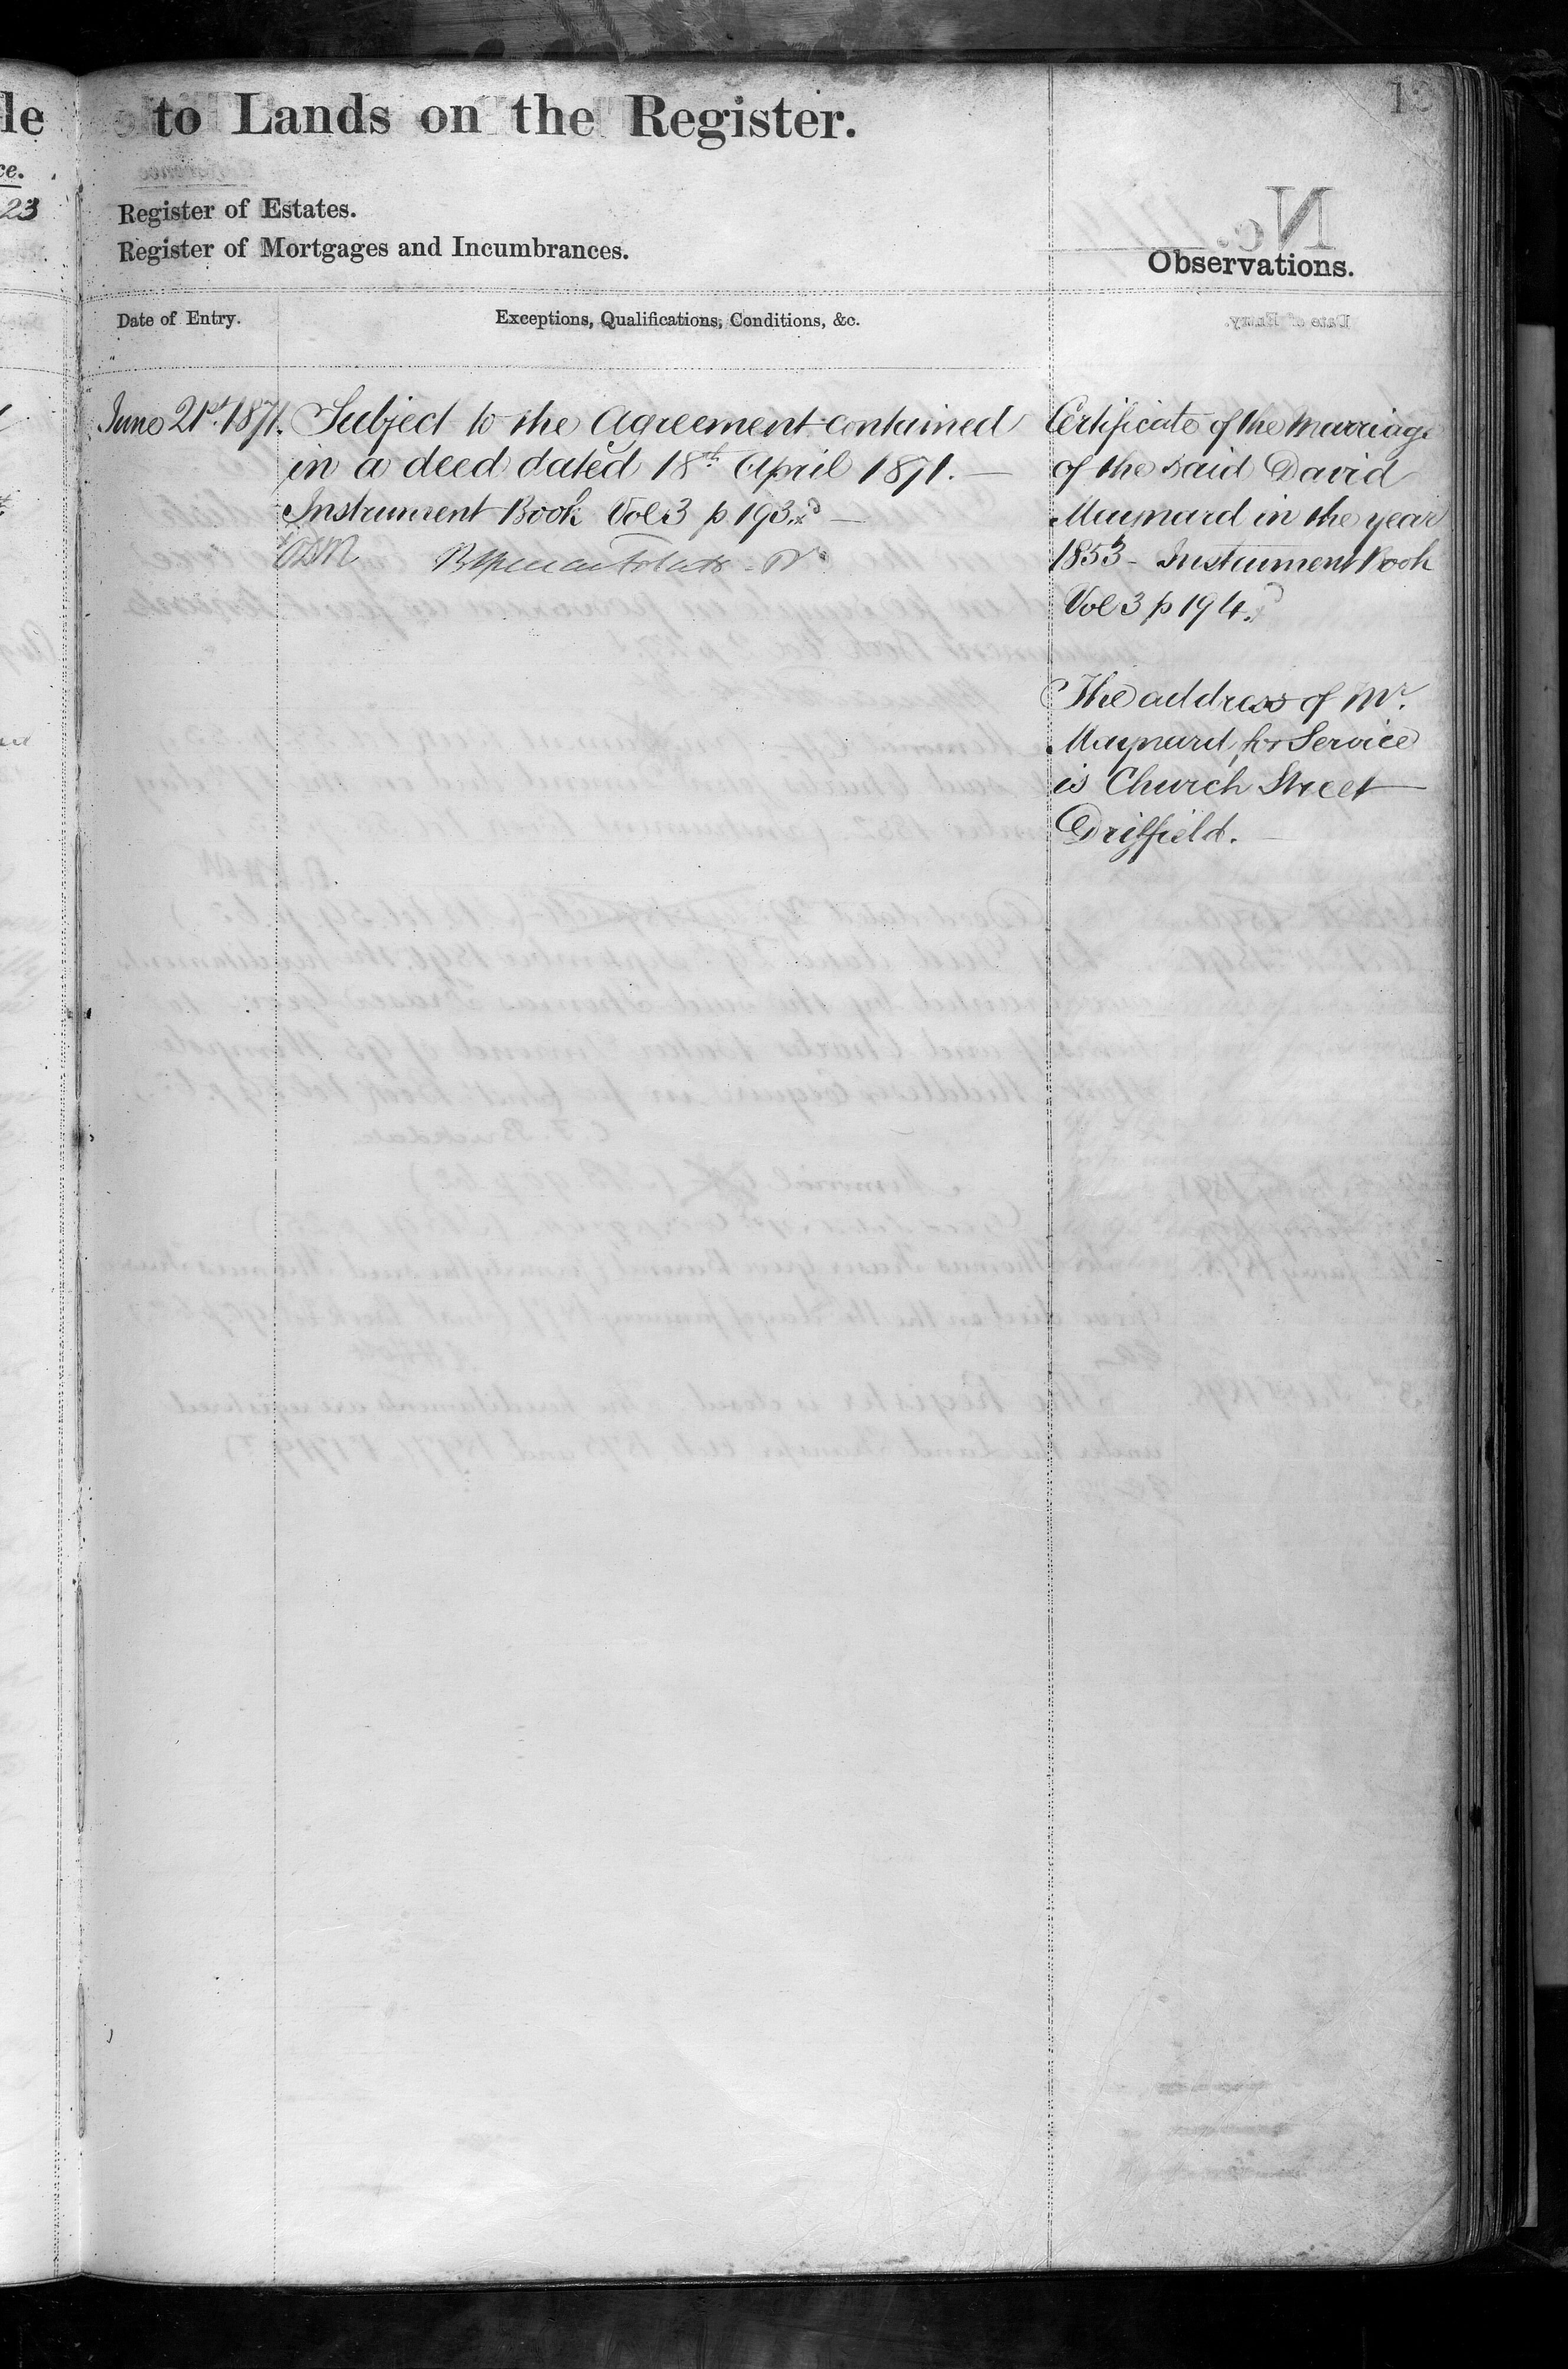 le
ce.
23
to Lands on the Register.
Register of Estates.
Register of Mortgages and Incumbrances.
Observations.
Date of Entry.
Exceptions, Qualifications, Conditions, &c.
June 21st. 1871.
Subject to the Agreement contained
in a deed dated 18th April 1871. —
Instrument Book Vol 3 p 193. —
Certificate of the Marriage
of the said David
Maynard in the year
1853 - Instrument Book
Vol 3 p 194.
The address of Mr.
Maynard for Service
is Church Street
Driffield.